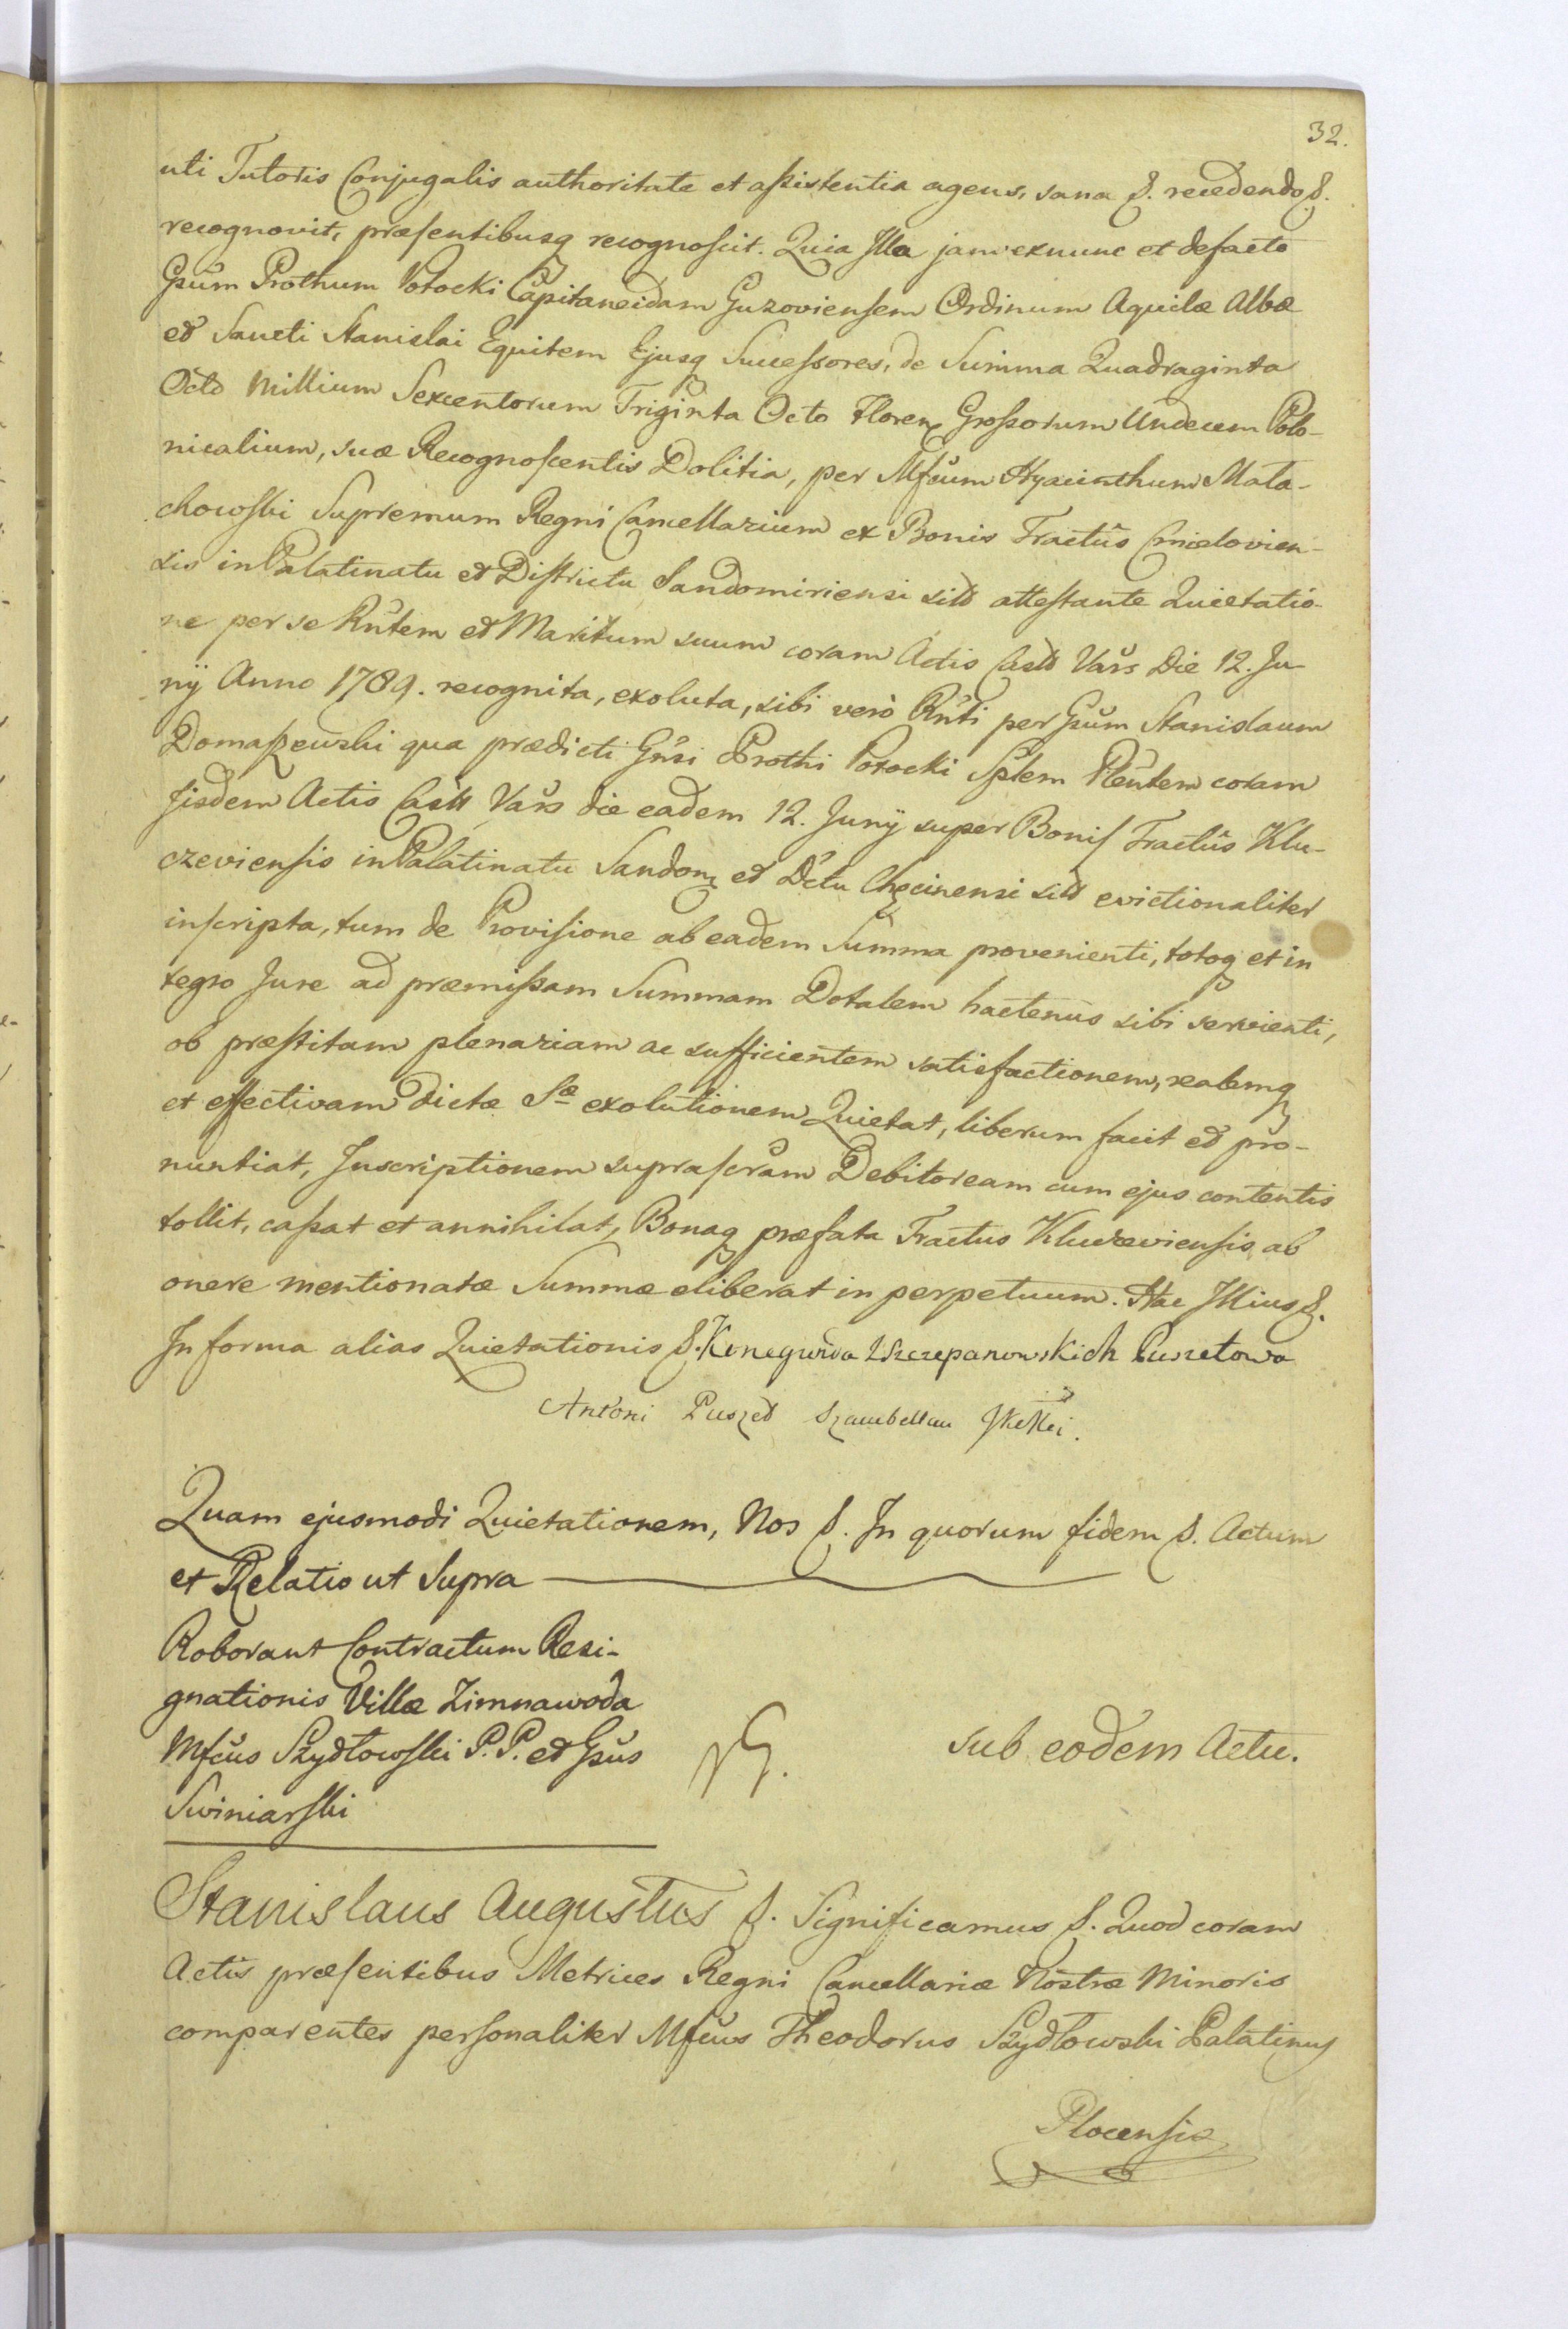 32.
uti Tutoris Conjugalis authoritate et assistentia agens, sana &. recedendo &.
recognovit, præsentibusq recognoscit. Quia Illa jam exnunc et defacto
Gsum Prothum Potocki Capitaneidam Guzoviensem Ordinum Aquilæ Albæ
et Sancti Stanislai Equitem Ejusq Successores, de Summa Quadraginta
Octo Millium Sexcentorum Triginta Octo Floren Grossorum Undecem Polo-
nicalium, suæ Recognoscentis Dolitia, per Mfcum Hyacinthum Mała-
chowski Supremum Regni Cancellarium ex Bonis Tractûs Cmielovien-
sis in Palatinatu et Districtu Sandomiriensi sitis attestante Quietatio-
ne per se Rntem et Maritum suum coram Actis Castr Vars Die 12. Ju-
nij Anno 1789. recognita, exoluta, sibi verò Rnti per Gsum Stanislaum
Domaszewski qua prædicti Gnsi Prothi Potocki Splem Plentem coram
Iisdem Actis Castr Vars die eadem 12. Junij super Bonis Tractûs Klu-
czeviensis in Palatinatu Sandom et Dctu Chęcinensi sitis evictionaliter
inscripta, tum de Provisione ab eadem Summa provenienti, totoq et in
tegro Jure ad præmissam Summam Dotalem hactenus sibi servienti,
ob præstitam plenariam ac sufficientem satisfactionem, realemq
et effectivam dictæ Sæ exolutionem Quietat, liberum facit et pro-
nuntiat, Inscriptionem suprascram Debitoream cum ejus contentis
tollit, cassat et annihilat, Bonaq præfata Tractus Kluczeviensis ab
onere mentionatæ Summæ eliberat in perpetuum. Hac Illius &.
In forma alias Quietationis &. Kunegunda z Szczepanowskich Puszetowa
Antoni Puszet Szambellan JKcMci.
Quam ejusmodi Quietationem, Nos &. In quorum fidem &. Actum
et Relatio ut Supra
Roborant Contractum Resi-
gnationis Villæ Zimnawoda
Mfcus Szydłowski P. P. et Gsus
Swiniarski
sub eodem Actu.
Stanislaus Augustus &. Significamus &. Quod coram
Actis præsentibus Metrices Regni Cancellariæ Nostræ Minoris
comparentes personaliter Mfcus Theodorus Szydłowski Palatinus
Plocensis